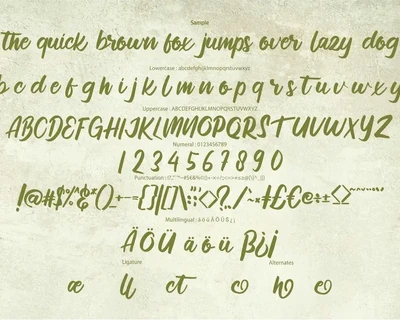 Sample
the quick brown fox jumps over lazy dog
Lowercase : abcdefghijklmnopqrstuvwxyz
b c d e f g h i j k l m n o p q r s t u v w x y
Uppercase : ABCDEFGHIJKLMNOPQRSTUVWXYZ
ABCDEFGHIJKLMNOPQRSTUVWXYZ
Numeral : 0123456789
1 2 3 4 5 6 7 8 9 0
Punctuation :
Multilingual : ä ö ü Ä Ö Ü ß ¿ ¡
ÄÖÜ äöü ß¿¡
Ligature Alternates